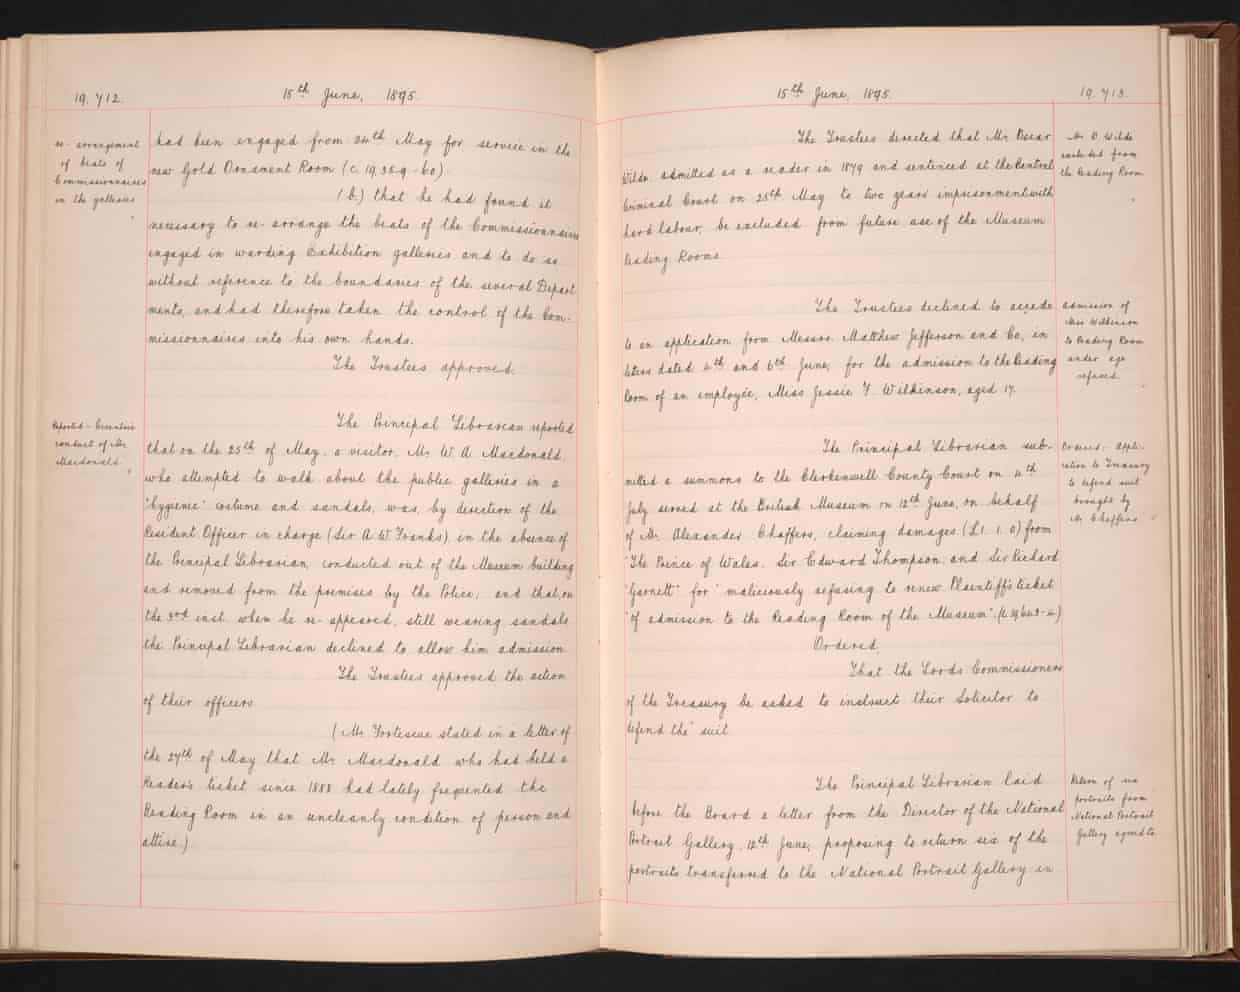 19,712.
15th June, 1895.
re-arrangement
of beats of
Commissionnaires
in the galleries
had been engaged from 24th May for service in the
new Gold Ornament Room (c. 19,359-60).
(b.) that he had found it
necessary to re-arrange the beats of the Commissionnaires
engaged in warding Exhibition galleries and to do so
without reference to the boundaries of the several Depart-
ments, and had therefore taken the control of the Com-
missionnaires into his own hands.
The Trustees approved.
Reported - Eccentric
conduct of Mr.
Macdonald.
The Principal Librarian reported
that on the 25th of May, a visitor, Mr. W. A. Macdonald,
who attempted to walk about the public galleries in a
"hygienic" costume and sandals, was, by direction of the
Resident Officer in charge (Sir A. W. Franks), in the absence of
the Principal Librarian, conducted out of the Museum building
and removed from the premises by the Police; and that, on
the 3rd inst. when he re-appeared, still wearing sandals,
the Principal Librarian declined to allow him admission.
The Trustees approved the action
of their officers.
(Mr. Fortescue stated in a letter of
the 27th of May that Mr. Macdonald who had held a
Reader's ticket since 1888 had lately frequented the
Reading Room in an uncleanly condition of person and
attire.)
15th June, 1895.
19,713.
Mr. O. Wilde
excluded from
the Reading Room.
The Trustees directed that Mr. Oscar
Wilde, admitted as a reader in 1879 and sentenced at the Central
Criminal Court on 25th May to two years' imprisonment with
hard labour, be excluded from future use of the Museum
Reading Rooms.
admission of
Miss Wilkinson
to Reading Room
under age
refused.
The Trustees declined to accede
to an application from Messrs. Matthew Jefferson and Co., in
letters dated 4th and 6th June, for the admission to the Reading
Room of an employée, Miss Jessie F. Wilkinson, aged 17.
Ordered - appli-
cation to Treasury
to defend suit
brought by
Mr. Chaffers.
The Principal Librarian sub-
mitted a summons to the Clerkenwell County Court on 4th
July served at the British Museum on 12th June, on behalf
of Mr. Alexander Chaffers, claiming damages (£1. 1. 0) from
"The Prince of Wales, Sir Edward Thompson, and Sir Richard
"Garnett" for "maliciously refusing to renew Plaintiff's ticket
"of admission to the Reading Room of the Museum".
Ordered,
That the Lords Commissioners
of the Treasury be asked to instruct their Solicitor to
defend the suit.
Return of six
portraits from
National Portrait
Gallery agreed to.
The Principal Librarian laid
before the Board a letter from the Director of the National
Portrait Gallery, 12th June, proposing to return six of the
portraits transferred to the National Portrait Gallery in